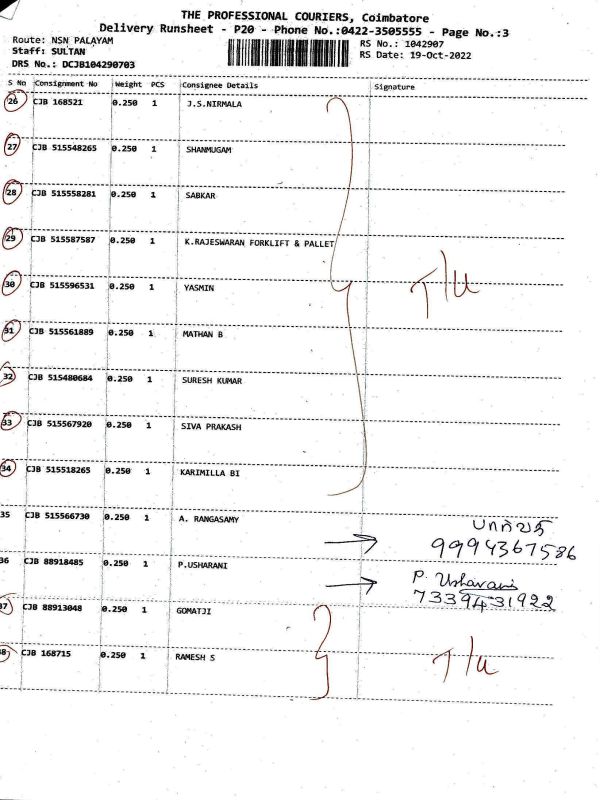 THE PROFESSIONAL COURIERS, Coimbatore
Delivery Runsheet - P20 - Phone No.:0422-3505555 - Page No.:3
Route: NSN PALAYAM
Staff: SULTAN
DRS No.: DCJB104290703
RS No.: 1042907
RS Date: 19-Oct-2022
S No Consignment No Weight PCS Consignee Details Signature
26 CJB 168521 0.250 1 J.S.NIRMALA
27 CJB 515548265 0.250 1 SHANMUGAM
28 CJB 515558281 0.250 1 SABKAR
29 CJB 515587587 0.250 1 K.RAJESWARAN FORKLIFT & PALLET
30 CJB 515596531 0.250 1 YASMIN
T/u
31 CJB 515561889 0.250 1 MATHAN B
32 CJB 515480684 0.250 1 SURESH KUMAR
33 CJB 515567920 0.250 1 SIVA PRAKASH
34 CJB 515518265 0.250 1 KARIMILLA BI
35 CJB 515566730 0.250 1 A. RANGASAMY
9994367586
36 CJB 88918485 0.250 1 P.USHARANI
P. Usharani
7339431922
37 CJB 88913048 0.250 1 GOMATJI
38 CJB 168715 0.250 1 RAMESH S
T/u